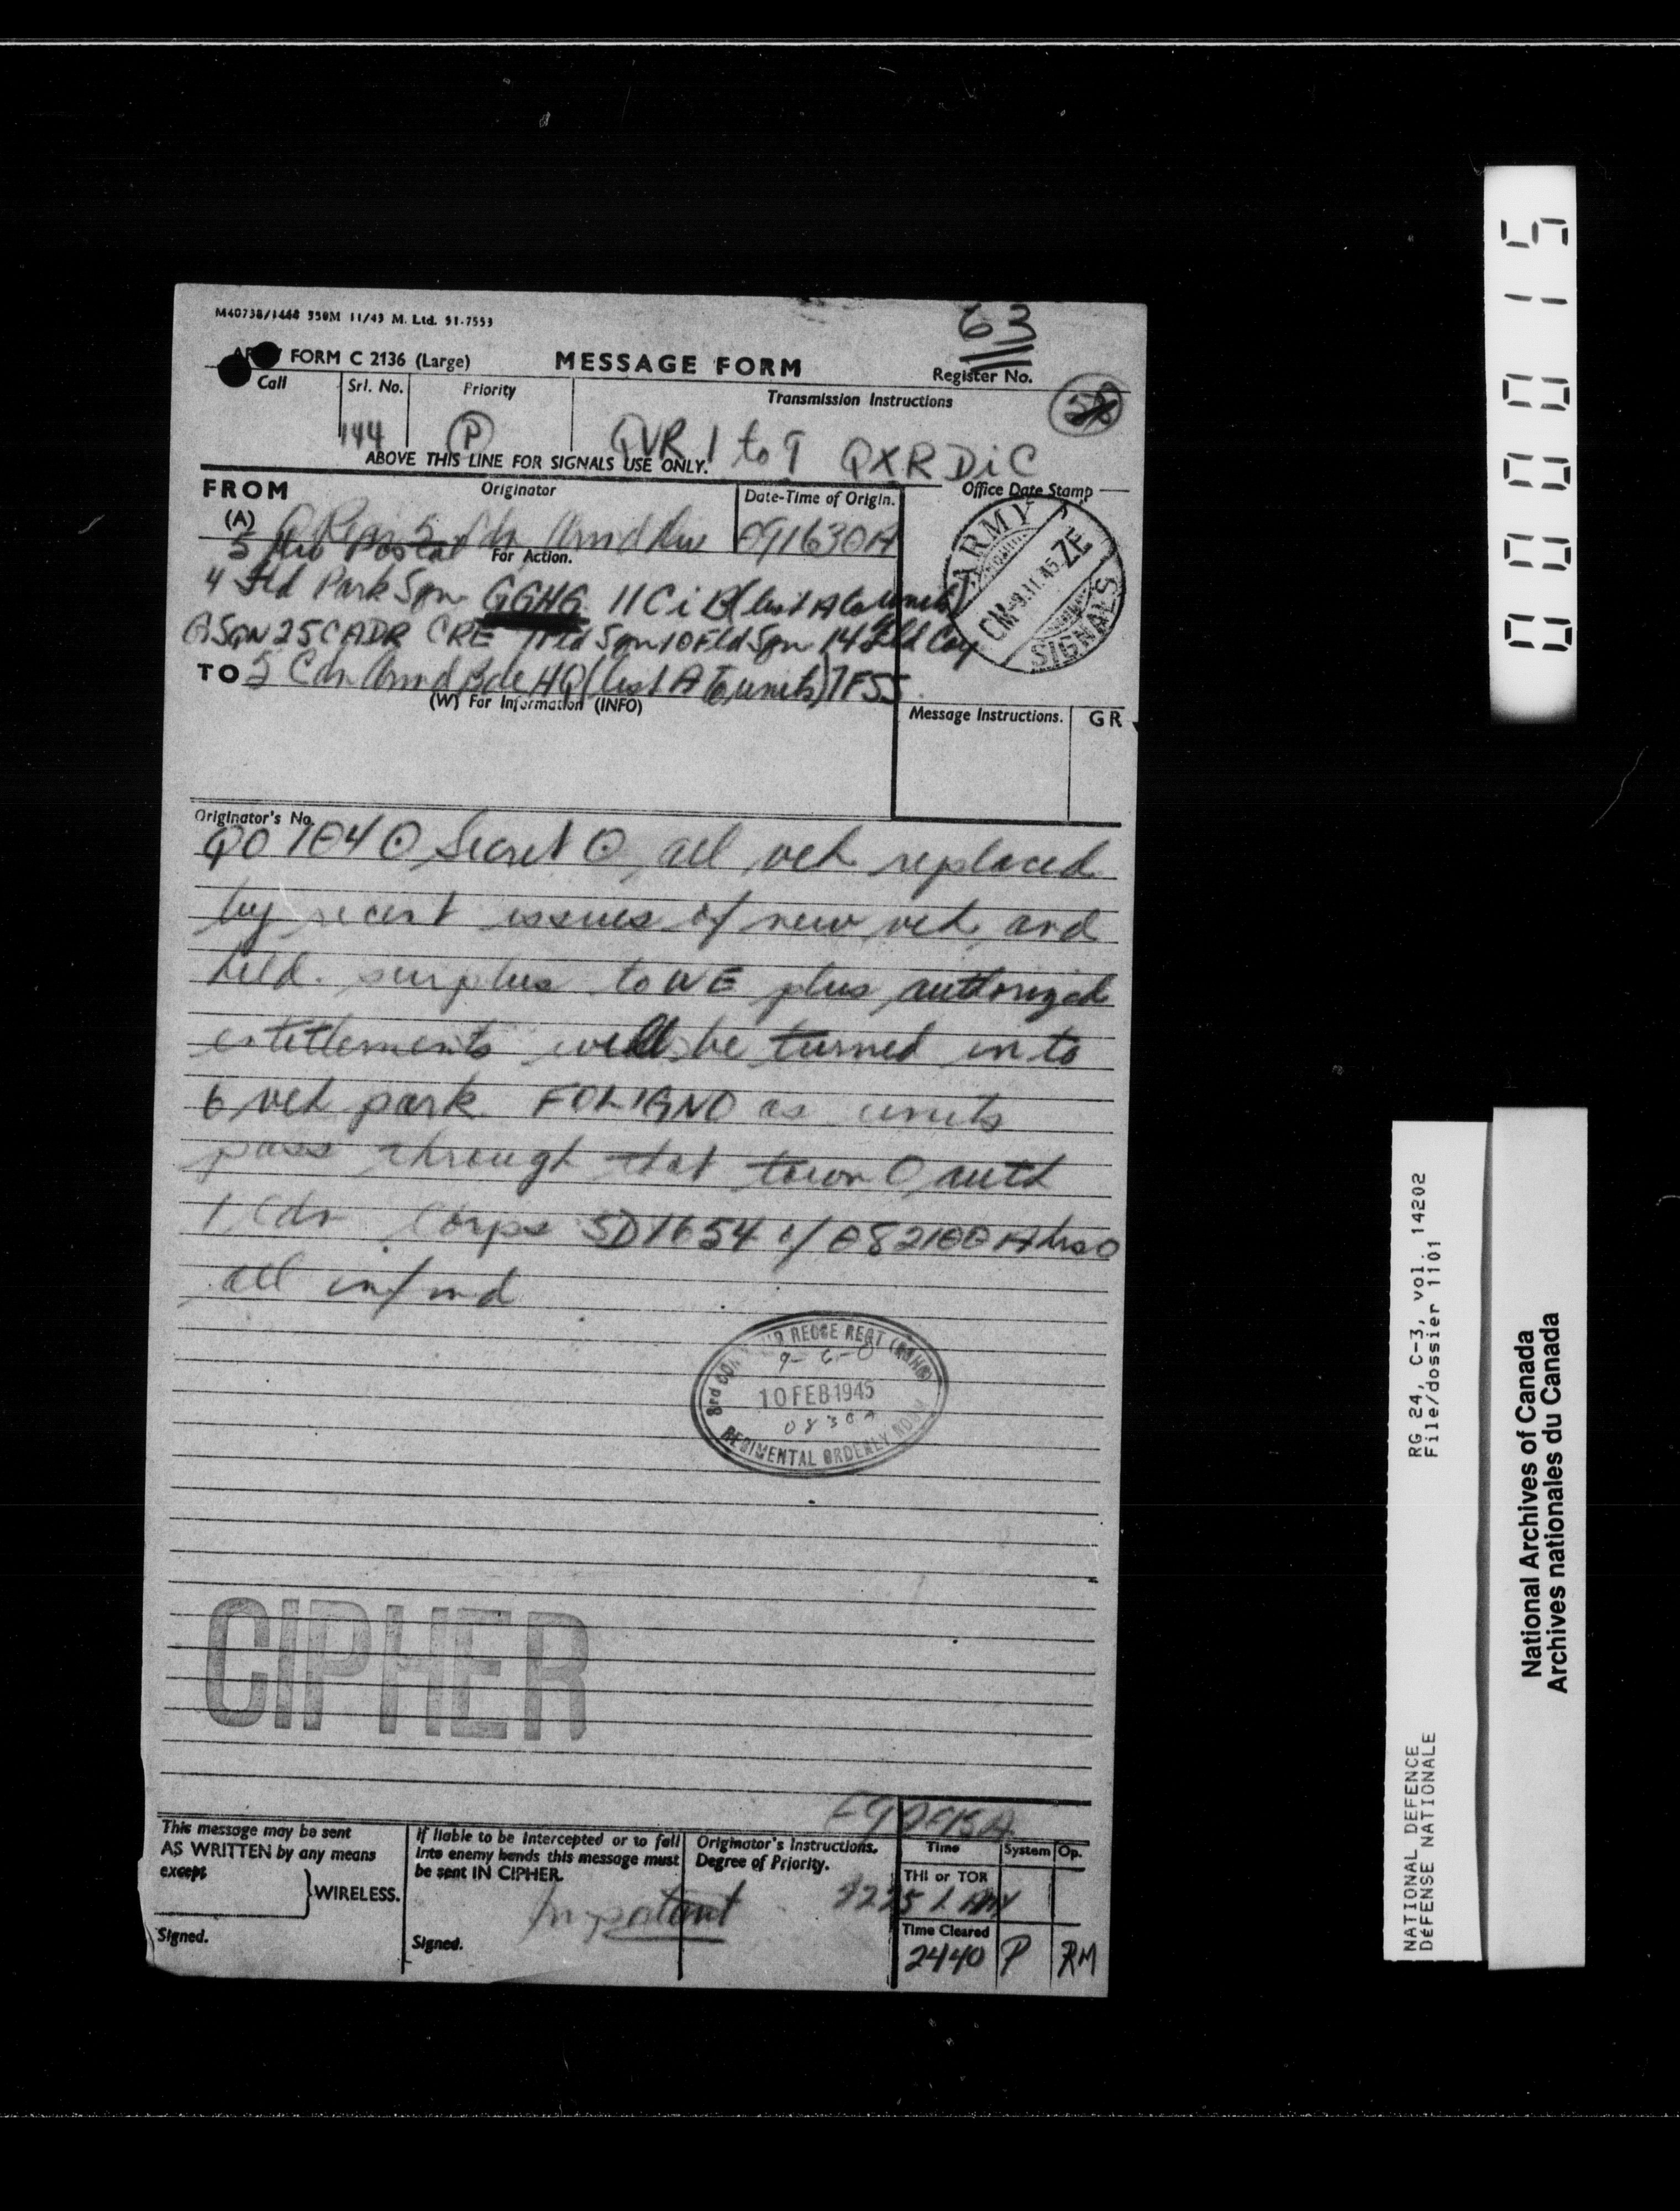 M40738/1448 350M 11/43 M. Ltd. 51-7553
63
FORM C 2136 (Large)
MESSAGE FORM
Register No.
Call
Srl. No.
Priority
Transmission Instructions
58
144
P
QVR 1 to 9 QXR DiC
ABOVE THIS LINE FOR SIGNALS USE ONLY.
FROM
Originator
Date-Time of Origin.
Office Date Stamp
(A)
5 Cdn Armd Div
091630A
5 Div Postal
For Action.
ARMY SIGNALS
CM-9.11.45 ZE
4 Fld Park Sqn GGHG 11 C i B (list A 6 units)
A SQN 25 CADR CRE 1 Fld Sqn 10 Fld Sqn 14 Fld Coy
TO 5 Cdn Armd Bde HQ (list A 6 units) 7 FSS
(W) For Information (INFO)
Message Instructions.
GR
Originator's No.
QO 104 O Secret O all veh replaced
by recent issues of new veh and
held surplus to WE plus authorized
entitlements will be turned in to
6 veh park FOLIGNO as units
pass through that town O auth
1 Cdn Corps SD1654 of 082100A hrs O
all infmd
3rd RECCE REGT
9-2-0
10 FEB 1945
0830A
REGIMENTAL ORDERLY ROOM
CIPHER
This message may be sent
AS WRITTEN by any means
except
WIRELESS.
Signed.
If liable to be intercepted or to fall
into enemy hands this message must
be sent IN CIPHER.
Important
Signed.
Originator's Instructions.
Degree of Priority.
Time
System
Op.
THI or TOR
2225
Time Cleared
2440
P
RM
000015
RG 24, C-3, vol. 14202
File/dossier 1101
NATIONAL DEFENCE
DÉFENSE NATIONALE
National Archives of Canada
Archives nationales du Canada